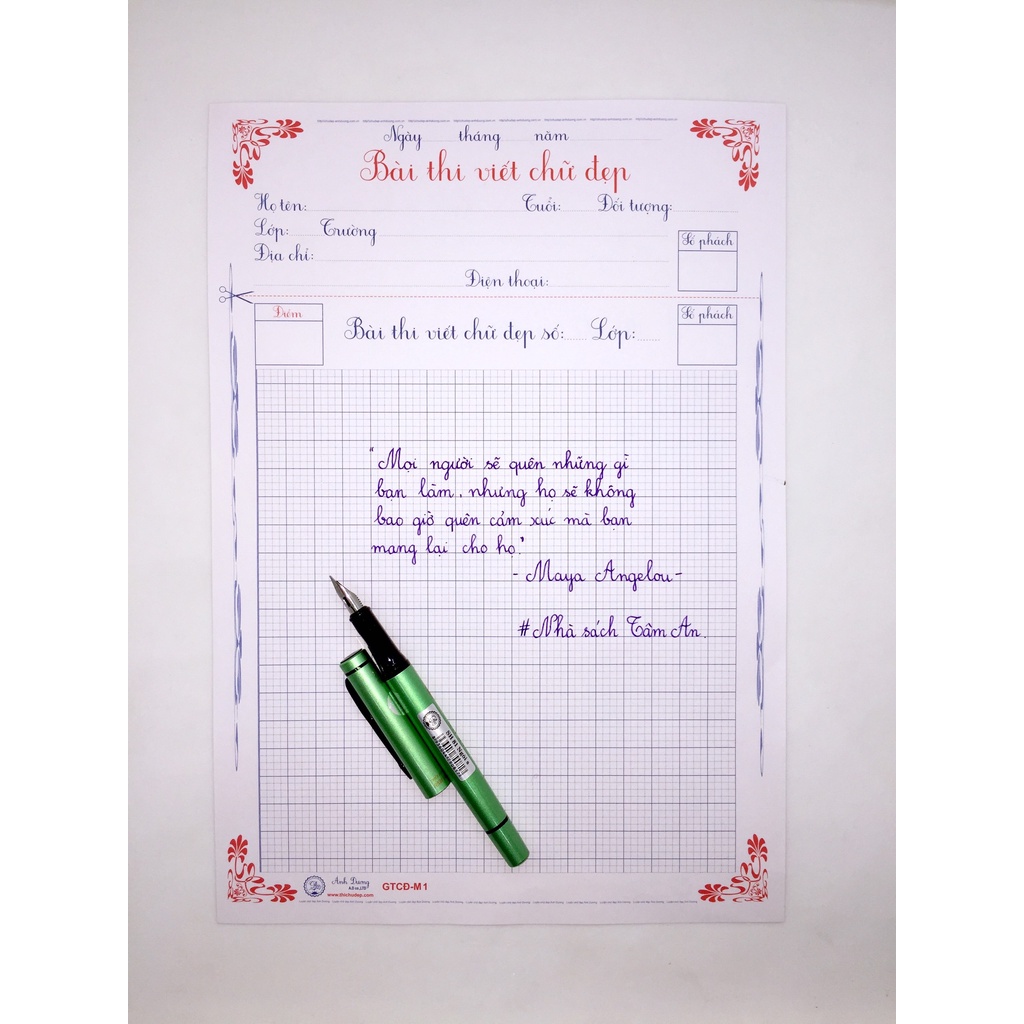 Ngày tháng năm
Bài thi viết chữ đẹp
Họ tên: Tuổi: Đối tượng:
Lớp: Trường
Số phách
Địa chỉ:
Điện thoại:
Điểm
Bài thi viết chữ đẹp số: Lớp:
Số phách
"Mọi người sẽ quên những gì
bạn làm, nhưng họ sẽ không
bao giờ quên cảm xúc mà bạn
mang lại cho họ."
- Maya Angelou -
#Nhà sách Tâm An.
Ánh Dương
www.thichudep.com
GTCĐ-M1